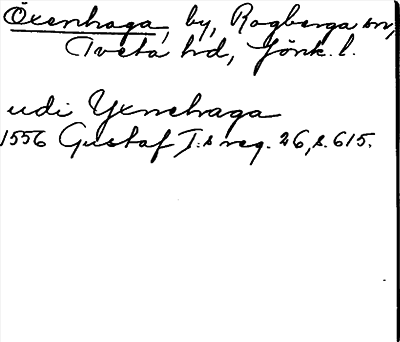 Öxenhaga, by, Rogberga sn,
Tveta hd, Jönk. l.
udi Yxnehaga
1556 Gustaf I:s reg. 26, s. 615.